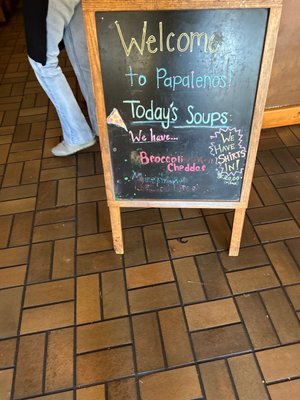 Welcome
to Papalenos!
Today's Soups:
We have...
Broccoli
Cheddar
We Have
T-Shirts
in!